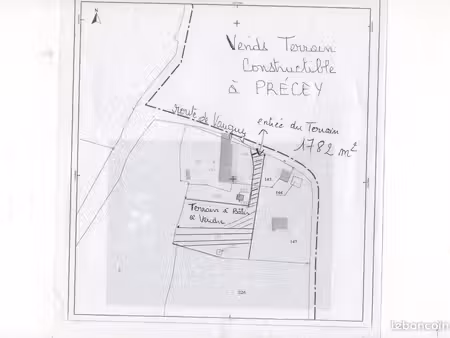 Vends Terrain
Constructible
à PRÉCEY
Route de Vaugris
entrée du Terrain
1782 m²
Terrain à Bâtir
à Vendre
leboncoin